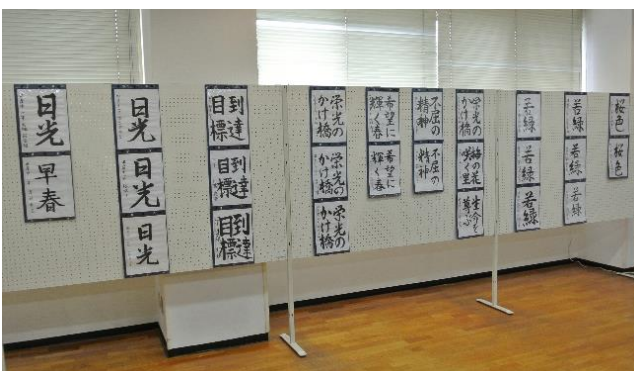 日光
早春
日光
日光
日光
到達
目標
到達
目標
到達
目標
栄光の
かけ橋
栄光の
かけ橋
栄光の
かけ橋
希望に
輝く春
希望に
輝く春
不屈の
精神
不屈の
精神
栄光の
かけ橋
梅の花
咲く里
生命を
尊ぶ
若緑
若緑
若緑
若緑
若緑
若緑
桜色
桜色